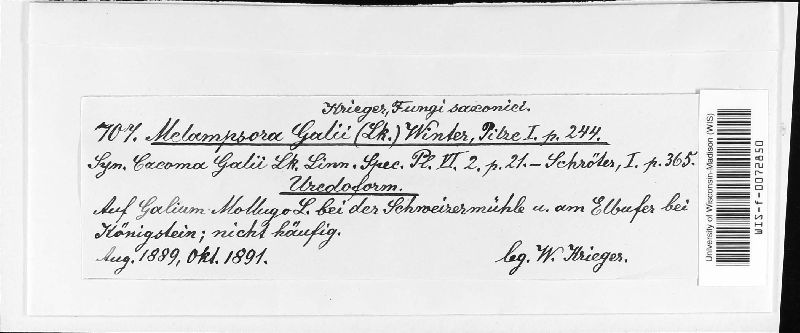 Krieger, Fungi saxonici.
707. Melampsora Galii (Lk.) Winter, Pilze I. p. 244.
Syn. Caeoma Galii Lk. Linn. Spec. Pl. VI. 2. p. 21. – Schröter, I. p. 365.
Uredoform.
Auf Galium Mollugo L. bei der Schweizermühle u. am Elbufer bei
Königstein; nicht häufig.
Aug. 1889, Okt. 1891.
leg. W. Krieger.
University of Wisconsin-Madison (WIS)
WIS-f-0072850